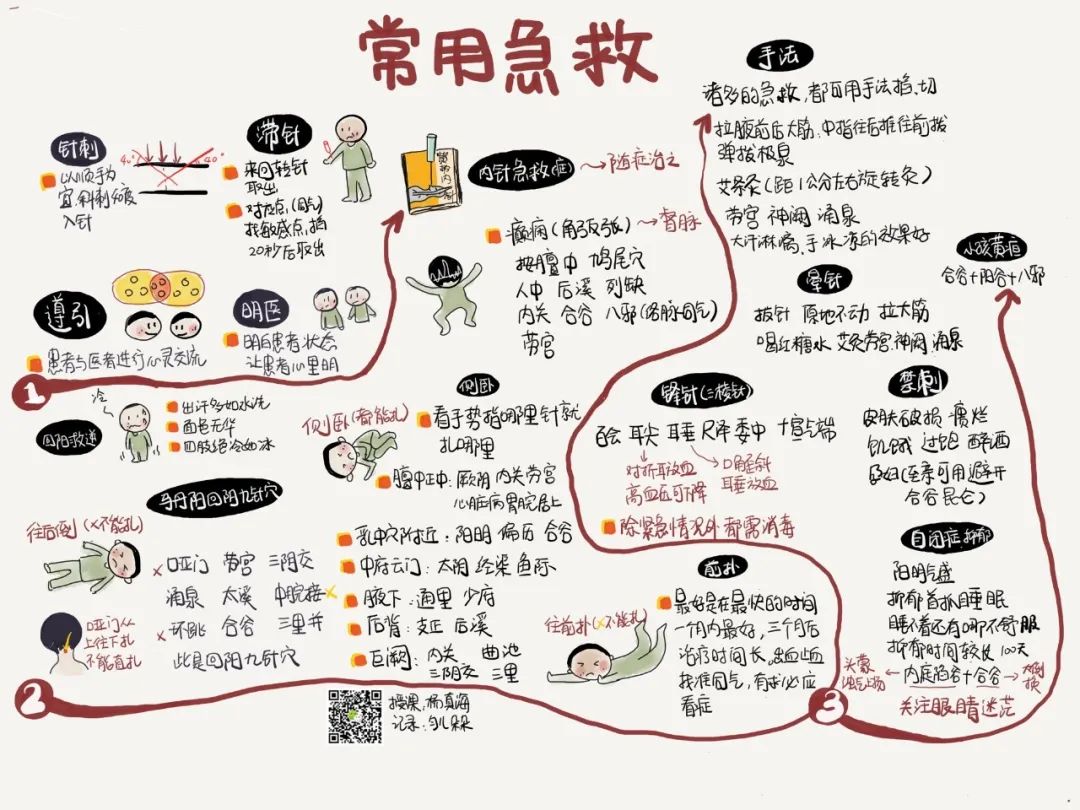 常用急救
针刺
以顺手为
宜,斜刺45度
入针
45°
40°
滞针
来回转针
取出
对应点,(同气)
找敏感点,掐
20秒后取出
黄帝内针
内针急救(症)
随症治之
癫痫(角弓反张)
督脉
按膻中 鸠尾穴
人中 后溪 列缺
内关 合谷 八邪(络脉同气)
劳宫
遵引
患者与医者进行心灵交流
明医
明白患者状态
让患者心里明
1
回阳救逆
冷
出汗多如水洗
面色无华
四肢绝冷如冰
马丹阳回阳九针穴
往后倒(×不能扎)
×哑门 劳宫 三阴交
涌泉 太溪 中脘接×
×环跳 合谷 三里并
此是回阳九针穴
哑门从
上往下扎
不能直扎
侧卧
侧卧(都能扎)
看手势指哪里针就
扎哪里
膻中正中:厥阴 内关 劳宫
心脏病胃脘居上
乳中穴附近:阳明 偏历 合谷
中府云门:太阴 经渠 鱼际
腋下:通里 少府
后背:支正 后溪
巨阙:内关 曲池
三阴交 三里
2
授课:杨真海
手法
诸多的急救,都可用手法掐、切
拉腋前后大筋:中指往后推往前拨
弹拨极泉
艾条灸(距1公分左右旋转灸)
劳宫 神阙 涌泉
大汗淋漓、手冰凉的效果好
晕针
拔针 原地不动 拉大筋
喝红糖水 艾灸劳宫、神阙、涌泉
小孩黄疸
合谷+阳谷+八邪
锋针(三棱针)
百会 耳尖 耳垂 尺泽 委中 十宣气端
对折耳放血
高血压可降
口眼歪斜
耳垂放血
除紧急情况外都需消毒
禁刺
皮肤破损 溃烂
饥饿 过饱 醉酒
孕妇(至亲可用避开
合谷昆仑)
前扑
往前扑(×不能扎)
最好是在最快的时间
一个月内最好,三个月后
治疗时间长。出血止血
找准同气,有求必应
看症
自闭症抑郁
阳明气盛
抑郁首抓睡眠
睡着还有哪不舒服
抑郁时间较长 100天
内庭陷谷+合谷
头蒙
浊气上扬
关注眼睛迷茫
3